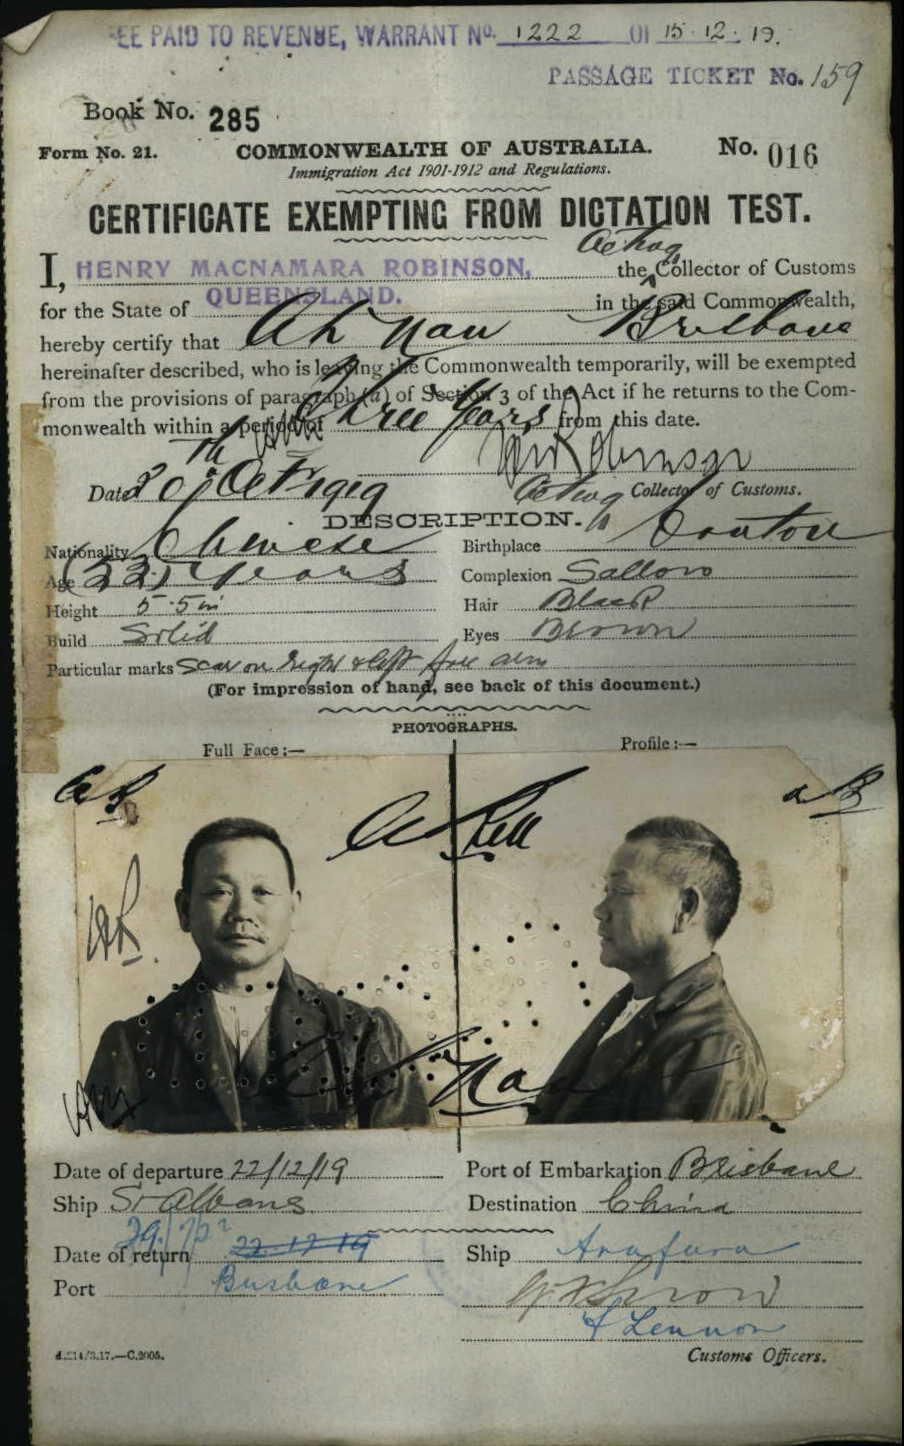 FEE PAID TO REVENUE, WARRANT No. 1222 OF 15.12.19.
PASSAGE TICKET No. 159
Book No. 285
Form No. 21. COMMONWEALTH OF AUSTRALIA. No. 016
Immigration Act 1901-1912 and Regulations.
CERTIFICATE EXEMPTING FROM DICTATION TEST.
Acting
I, HENRY MACNAMARA ROBINSON, the Collector of Customs
for the State of QUEENSLAND. in the said Commonwealth,
hereby certify that Ah Nau Brisbane
hereinafter described, who is leaving the Commonwealth temporarily, will be exempted
from the provisions of paragraph (a) of Section 3 of the Act if he returns to the Com-
monwealth within a period of Three Years from this date.
Date 30th Oct 1919 Acting Collector of Customs.
DESCRIPTION.
Nationality Chinese Birthplace Canton
Age (52) years Complexion Sallow
Height 5.5 in Hair Black
Build Solid Eyes Brown
Particular marks Scar on right & left fore arm
(For impression of hand, see back of this document.)
PHOTOGRAPHS.
Full Face:— Profile:—
Ah Nau
Date of departure 22/12/19 Port of Embarkation Brisbane
Ship St Albans Destination China
Date of return 22.12.19 Ship Arafura
Port Brisbane
F Lennon
d.214/3.17.—C.2005. Customs Officers.